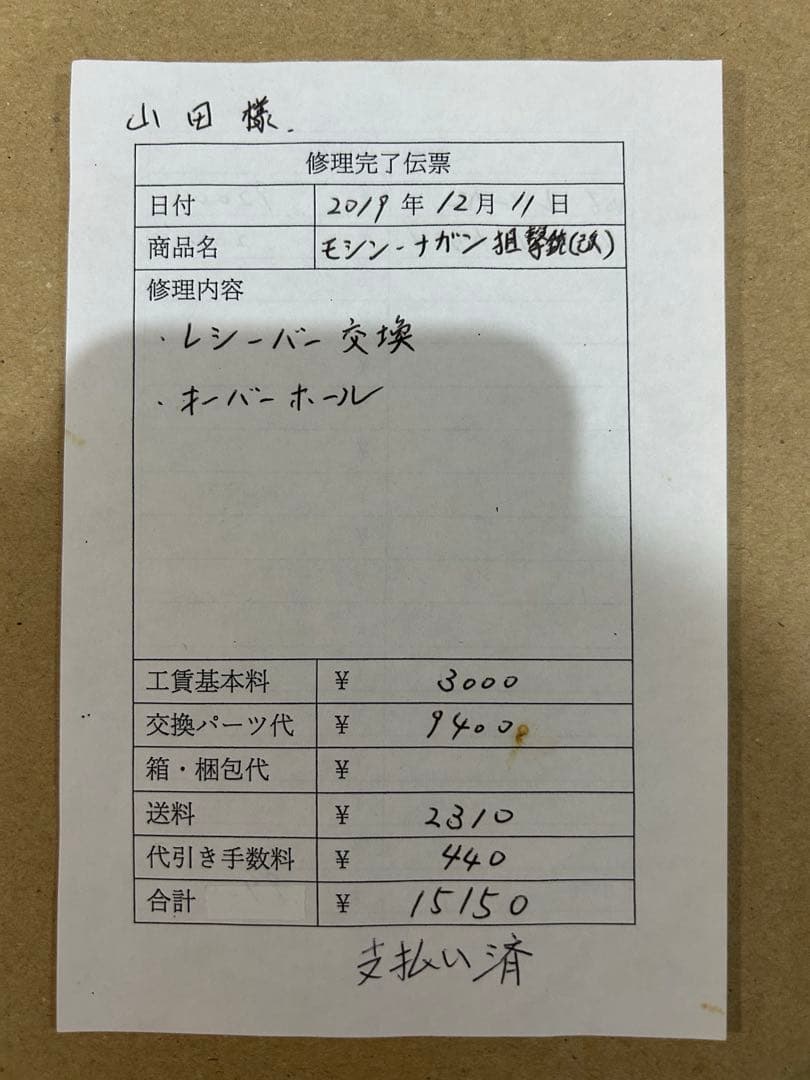 山田様.
修理完了伝票
日付 2019年12月11日
商品名 モシン-ナガン狙撃銃(改)
修理内容
・レシーバー交換
・オーバーホール
工賃基本料 ¥ 3000
交換パーツ代 ¥ 9400
箱・梱包代 ¥
送料 ¥ 2310
代引き手数料 ¥ 440
合計 ¥ 15150
支払い済